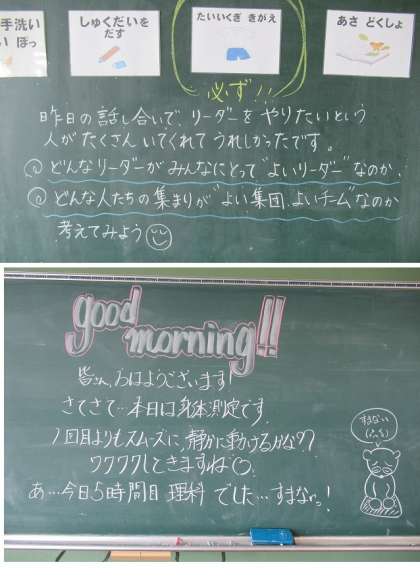 手洗い
い ぼっ
しゅくだいを
だす
たいいくぎ きがえ
あさ どくしょ
必ず!!
昨日の話し合いで、リーダーをやりたいという
人がたくさんいてくれてうれしかったです。
どんなリーダーがみんなにとって"よいリーダー"なのか、
どんな人たちの集まりが"よい集団、よいチーム"なのか
考えてみよう
good
morning!!
皆さん、おはようございます!
さてさて…本日は身体測定です。
1回目よりもスムーズに、静かに動けるかな??
ワクワクしてきますね
あ…今日5時間目 理科 でした…すまないっ!
すまない